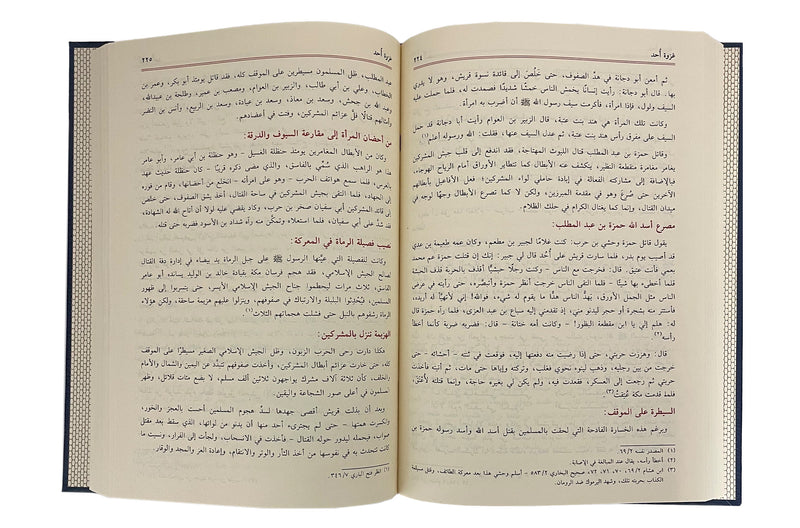 غزوة أحد
٢٢٤
ثم أمعن أبو دجانة في هدّ الصفوف، حتى خَلُصَ إلى قائدة نسوة قريش، وهو لا يدري
بها. قال أبو دجانة: رأيت إنسانًا يخمش الناس خمشًا شديدًا فصمدت له، فلما حملت عليه
السيف ولول، فإذا امرأة، فأكرمت سيف رسول الله ﷺ أن أضرب به امرأة.
وكانت تلك المرأة هي هند بنت عتبة، قال الزبير بن العوام: رأيت أبا دجانة قد حمل
السيف على مفرق رأس هند بنت عتبة، ثم عدل السيف عنها، فقلت: الله ورسوله أعلم(١).
وقاتل حمزة بن عبد المطلب قتال الليوث المهتاجة، فقد اندفع إلى قلب جيش المشركين
يغامر مغامرة منقطعة النظير، ينكشف عنه الأبطال كما تتطاير الأوراق أمام الرياح الهوجاء،
فبالإضافة إلى مشاركته الفعالة في إبادة حاملي لواء المشركين؛ فعل الأفاعيل بأبطالهم
الآخرين حتى صُرعَ وهو في مقدمة المبرزين، ولكن لا كما تصرع الأبطال وجهًا لوجه في
ميدان القتال، وإنما كما يغتال الكرام في حلك الظلام.
مصرع أسد الله حمزة بن عبد المطلب:
يقول قاتل حمزة وحشي بن حرب: كنت غلامًا لجبير بن مطعم، وكان عمه طعيمة بن عدي
قد أصيب يوم بدر، فلما سارت قريش على أُحُد قال لي جبير: إنك إن قتلت حمزة عم محمد
بعمي فأنت عتيق. قال: فخرجت مع الناس – وكنت رجلًا حبشيًّا أقذف بالحربة قذف الحبشة
قلما أخطئ بها شيئًا – فلما التقى الناس خرجت أنظر حمزة وأتبصَّره، حتى رأيته في عرض
الناس مثل الجمل الأورق، يهدُّ الناس هدًّا ما يقوم له شيء، فوالله! إني لأتهيأ له أريده،
فأستتر منه بشجرة أو حجر ليدنو مني، إذ تقدمني إليه سباع بن عبد العزى، فلما رآه حمزة قال
له: هلم إلي يا ابن مقطعة البظور! – وكانت أمه ختانة – قال: فضربه ضربة كأنما أخطأ
رأسه(٢).
قال: وهززت حربتي، حتى إذا رضيت منه دفعتها إليه، فوقعت في ثنته – أحشائه – حتى
خرجت من بين رجليه، وذهب لينوء نحوي فغلب، وتركته وإياها حتى مات، ثم أتيته فأخذت
حربتي ثم رجعت إلى العسكر، فقعدت فيه، ولم يكن لي بغيره حاجة، وإنما قتلته لأُعْتَق،
فلما قدمت مكة عُتِقتُ(٣).
السيطرة على الموقف:
وبرغم هذه الخسارة الفادحة التي لحقت بالمسلمين بقتل أسد الله وأسد رسوله حمزة بن
(١) المصدر نفسه ٢/٦٩.
(٢) أخطأ رأسه، يقال عند المبالغة في الإصابة.
(٣) ابن هشام ٢/ ٦٩، ٧٠، ٧١، ٧٢، صحيح البخاري ٢/ ٥٨٣ – أسلم وحشي هذا بعد معركة الطائف، وقتل مسيلمة
الكذاب بحربته تلك، وشهد اليرموك ضد الرومان.
غزوة أحد
٢٢٥
عبد المطلب، ظل المسلمون مسيطرين على الموقف كله، فقد قاتل يومئذ أبو بكر، وعمر بن
الخطاب، وعلي بن أبي طالب، والزبير بن العوام، ومصعب بن عمير، وطلحة بن عبيدالله،
وعبد الله بن جحش، وسعد بن معاذ، وسعد بن عبادة، وسعد بن الربيع، وأنس بن النضر
وأمثالهم قتالًا فلَّ عزائم المشركين، وفتَّ في أعضادهم.
من أحضان المرأة إلى مقارعة السيوف والدرقة:
وكان من الأبطال المغامرين يومئذ حنظلة الغسيل – وهو حنظلة بن أبي عامر، وأبو عامر
هذا هو الراهب الذي سُمِّي بالفاسق، والذي مضى ذكره قريبًا – كان حنظلة حديث عهد
بالعرس، فلما سمع هواتف الحرب – وهو على امرأته – انخلع من أحضانها، وقام من فوره
إلى الجهاد، فلما التقى بجيش المشركين في ساحة القتال، أخذ يشق الصفوف، حتى خلص
إلى قائد المشركين أبي سفيان صخر بن حرب، وكاد يقضي عليه لولا أن أتاح الله له الشهادة،
فقد شدَّ على أبي سفيان، فلما استعلاه وتمكن منه رآه شداد بن الأسود فضربه حتى قتله.
نصيب فصيلة الرماة في المعركة:
وكانت للفصيلة التي عينها الرسول ﷺ على جبل الرماة يد بيضاء في إدارة دفة القتال
لصالح الجيش الإسلامي، فقد هجم فرسان مكة بقيادة خالد بن الوليد يسانده أبو عامر
الفاسق، ثلاث مرات ليحطموا جناح الجيش الإسلامي الأيسر، حتى يتسربوا إلى ظهور
المسلمين، فيُحْدِثوا البلبلة والارتباك في صفوفهم، وينزلوا عليهم هزيمة ساحقة، ولكن هؤلاء
الرماة رشقوهم بالنبل حتى فشلت هجماتهم الثلاث(١).
الهزيمة تنزل بالمشركين:
هكذا دارت رحى الحرب الزبون، وظل الجيش الإسلامي الصغير مسيطرًا على الموقف
كله، حتى خارت عزائم أبطال المشركين، وأخذت صفوفهم تتبدَّد عن اليمين والشمال والأمام
والخلف، كأن ثلاثة آلاف مشرك يواجهون ثلاثين ألف مسلم، لا بضع مئات قلائل، وظهر
المسلمون في أعلى صور الشجاعة واليقين.
وبعد أن بذلت قريش أقصى جهدها لسدِّ هجوم المسلمين أحست بالعجز والخور،
وانكسرت همتها – حتى لم يجترىء أحد منها أن يدنو من لوائها، الذي سقط بعد مقتل
صواب، فيحمله ليدور حوله القتال – فأخذت في الانسحاب، ولجأت إلى الفرار، ونسيت ما
كانت تتحدث به في نفوسها من أخذ الثأر والوتر والانتقام، وإعادة العز والمجد والوقار.
(١) انظر فتح الباري ٧/ ٣٤٦.